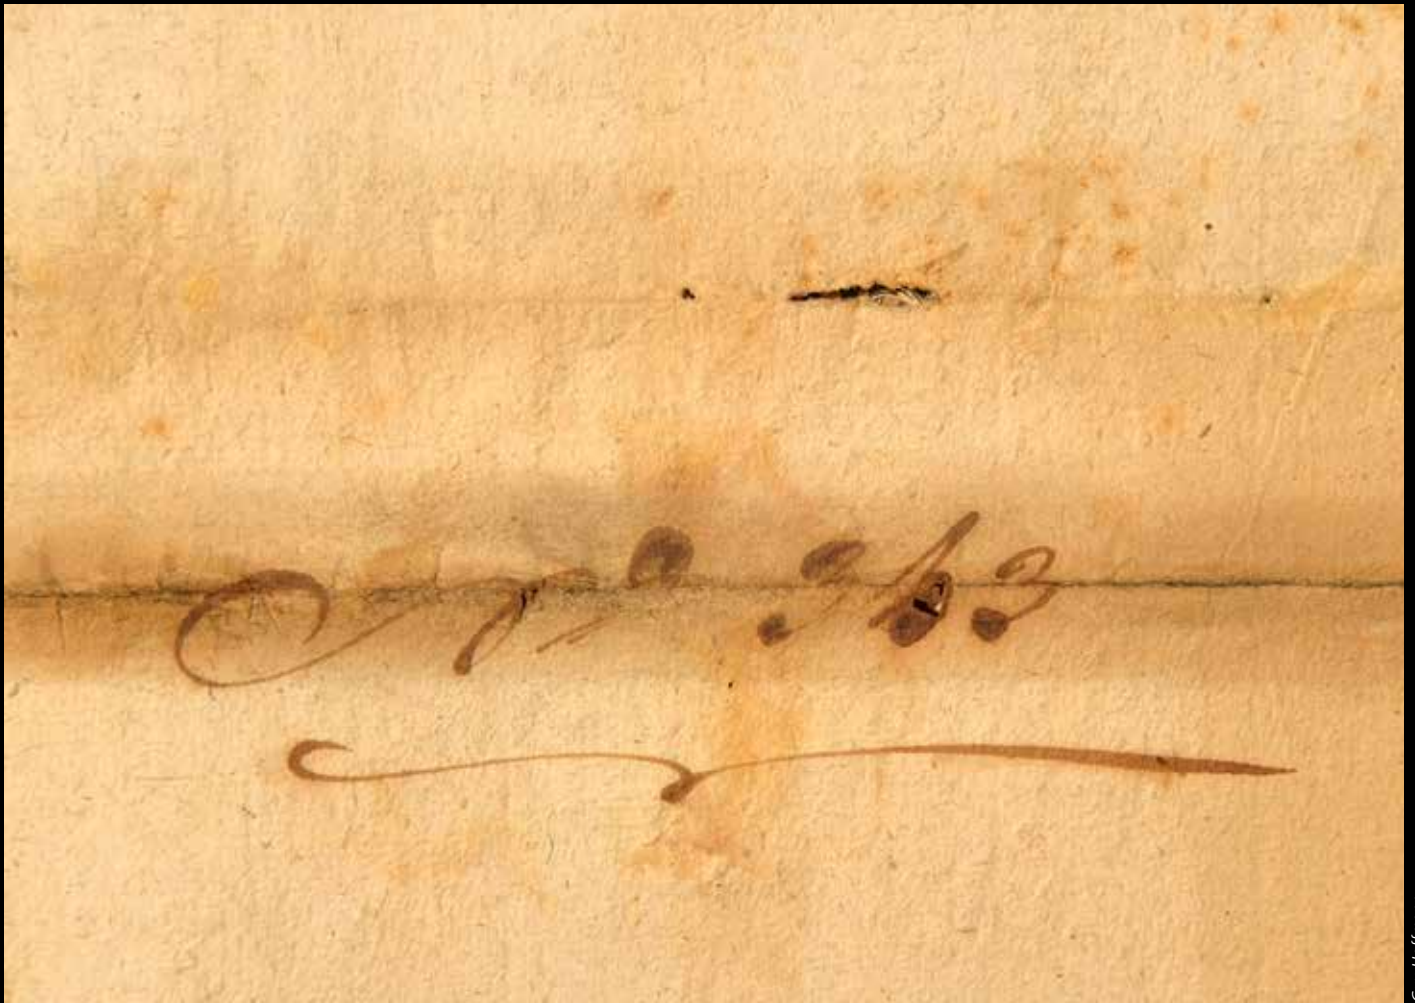 No 363